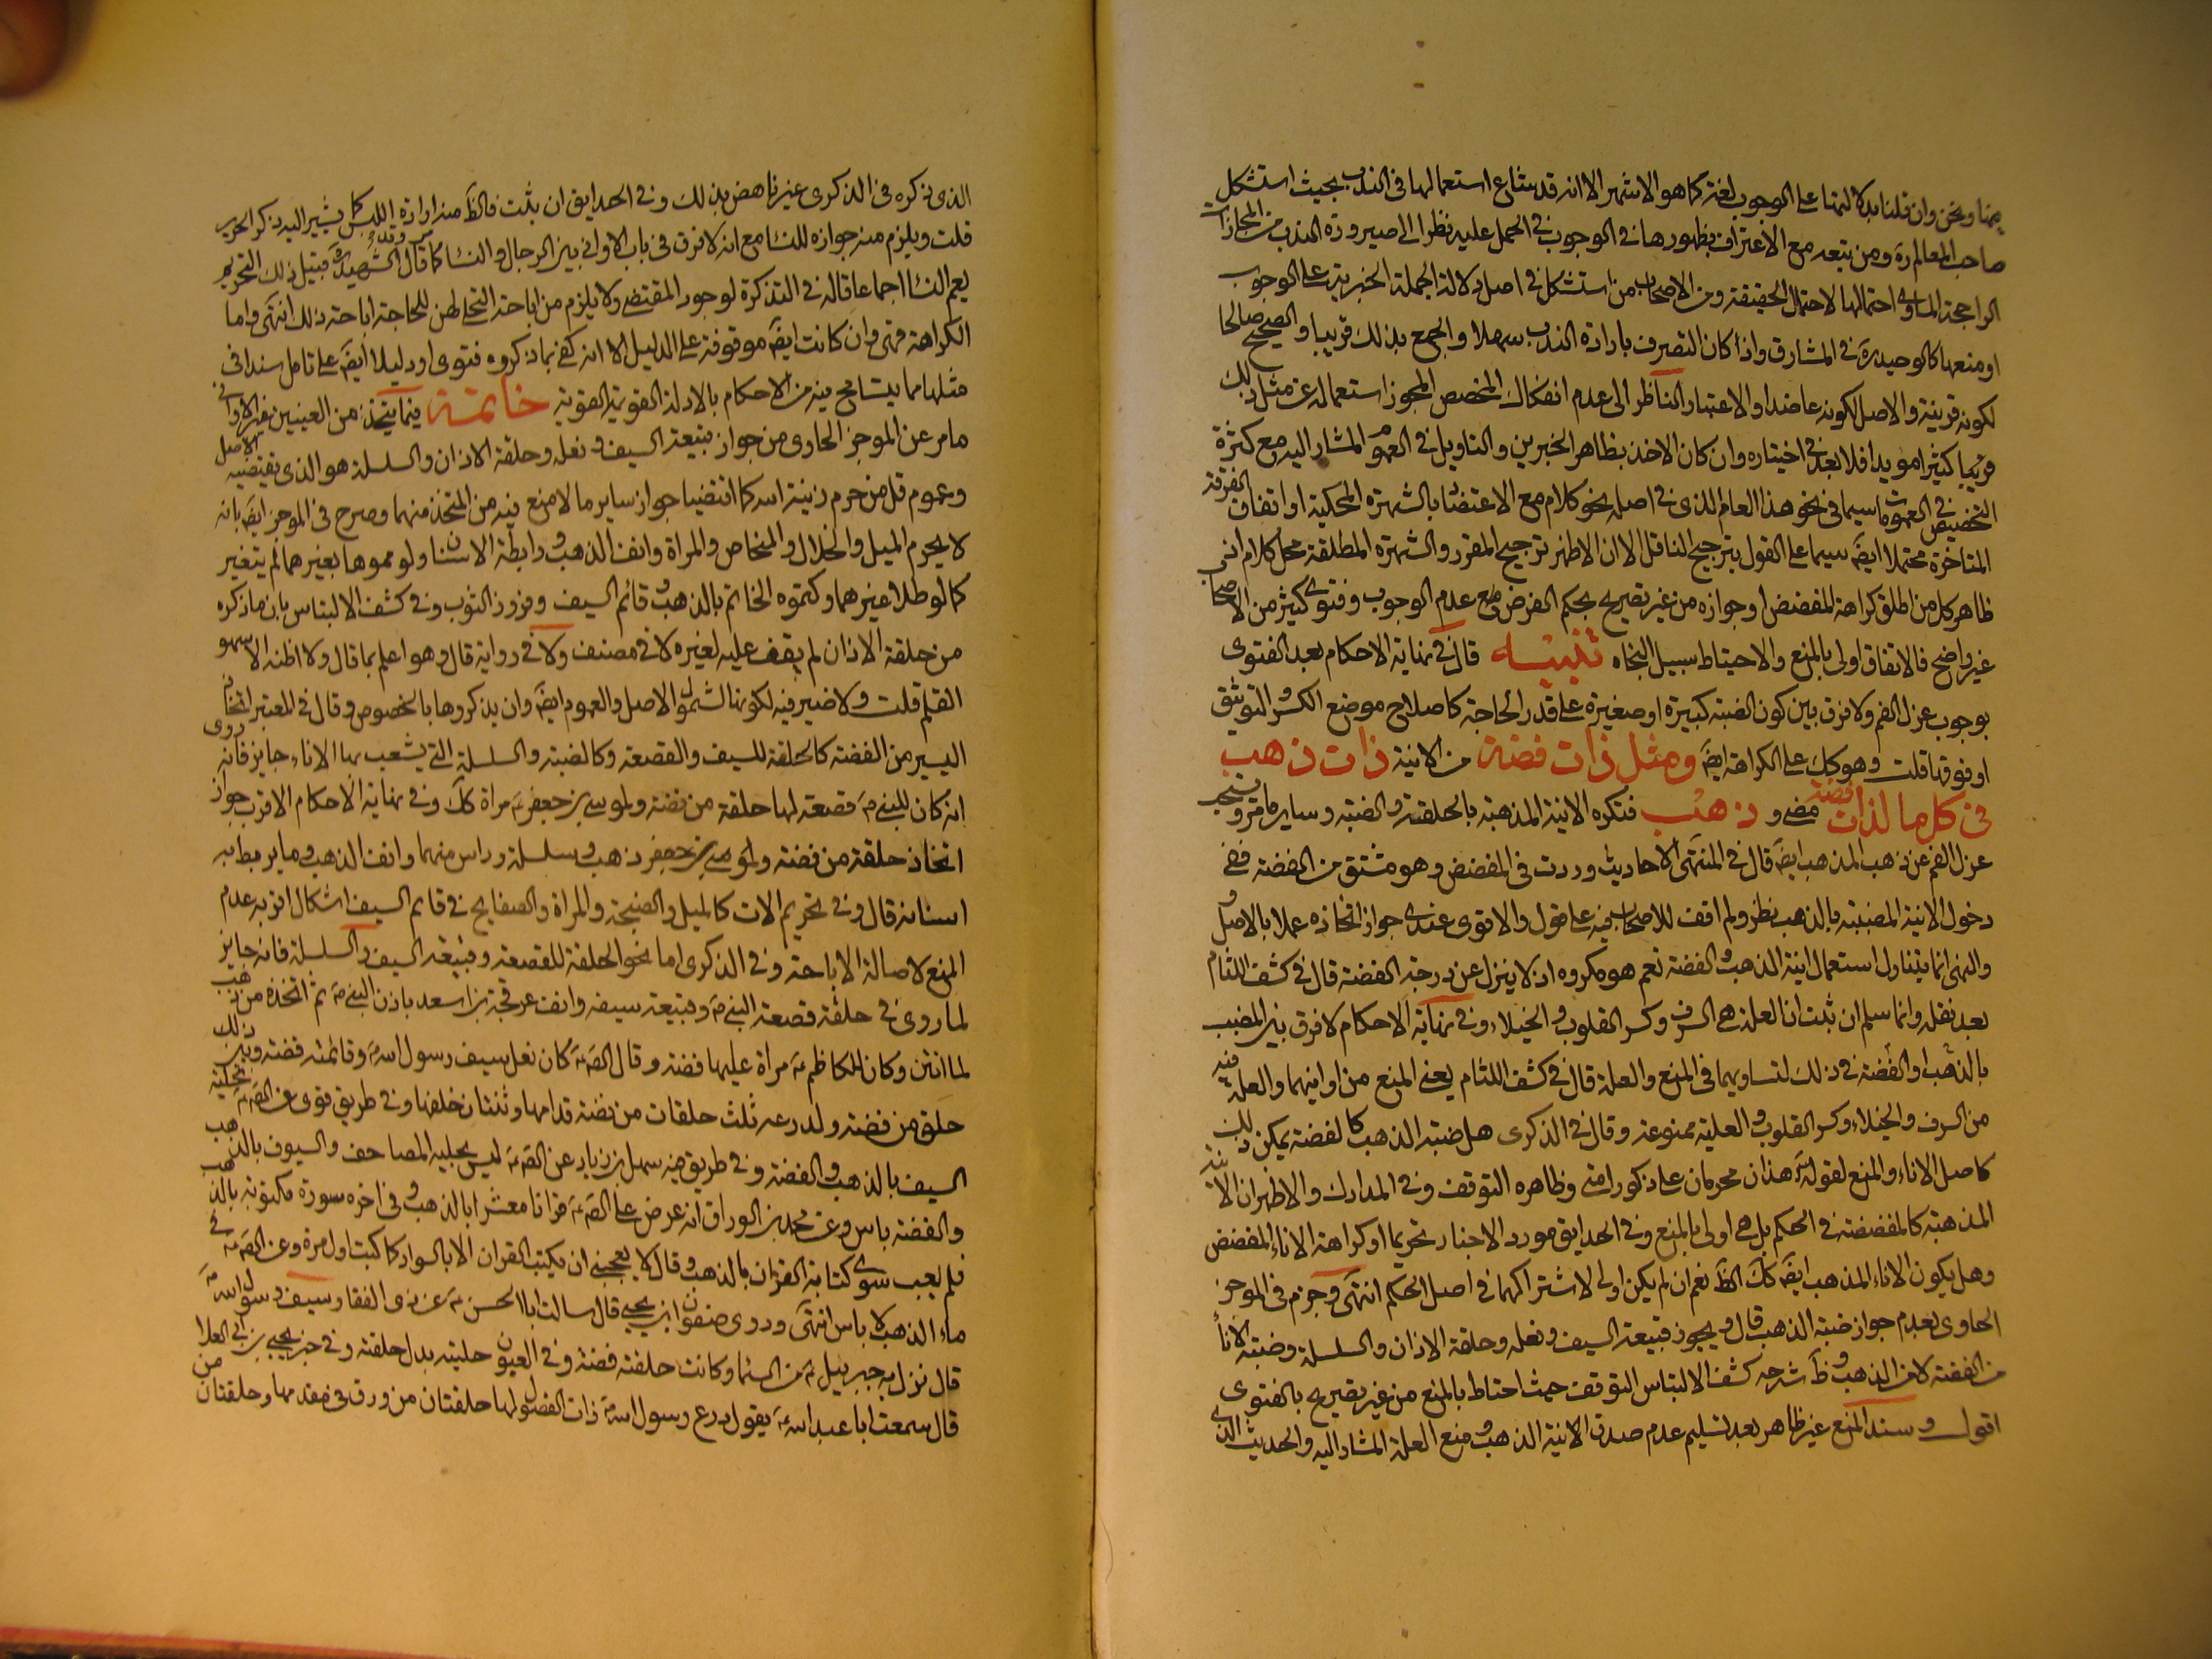 منا ونحن وان قلنا بدلالتها على الوجوب لغة كما هو الاشهر الا انه قد شاع استعمالها في الندب بحيث استشكل
صاحب المعالم ره ومن تبعه مع الاعتراف بظهورها في الوجوب في الحمل عليه نظرا الى صيرورة الندب من المجازات
الراجحة المساوى احتمالها لاحتمال الحقيقة ومن الاصحاب من استشكل في اصل دلالة الجملة الخبرية على الوجوب
او منعها كالوحيد ره في المشارق واذا كان التصرف بارادة الندب سهلا والجمع بذلك قريبا والصحيح صالحا
لكونه قرينة والاصل لكونه عاضدا والاعتبار الناظر الى عدم انفكاك المخصص المجوز استعماله عن مثل ذلك
قريبا كثيرا مويدا فلا بعد في اختياره وان كان الاخذ بظاهر الخبرين والتاويل في العموم المشار اليه مع كثرة
التخصيص في العمومات سيما في نحو هذا العام الذى في اصله نحو كلام مع الاعتضاد بالشهرة المحكية او اتفاق الفرقة
المتاخرة محتملا ايضً سيما على القول بترجيح الناقل الا ان الاظهر ترجيح المقرر والشهرة المطلقة محل كلام اذ
ظاهر كل من اطلق كراهة المفضض او جوازه من غير تصريح بحكم المفرض مع عدم الوجوب وفتوى كثير من الاصحاب
غير واضح فالاتفاق اولى بالمنع والاحتياط سبيل النجاه تنبيه قال في نهاية الاحكام بعد الفتوى
بوجوب عزل الفم ولا فرق بين كون الضبة كبيرة او صغيرة على قدر الحاجة كاصلاح موضع الكسر والتوثيق
او فوقها قلت وهو كك على الكراهة ايضً ومثل ذات فضة من الانية ذات ذهب
في كل ما لذات فضة مضى و ذهب فتكره الانية المذهبة بالحلقة والضبة وساير ما مر ويستحب
عزل الفم عن ذهب المذهب ايضً قال في المنتهى الاحاديث وردت في المفضض وهو مشتق من الفضة ففى
دخول الانية المضببة بالذهب نظر ولم اقف للاصحاب فيه على قول والاقوى عندى جواز اتخاذه عملا بالاصل و
والنهى انما يتناول استعمال انية الذهب والفضة نعم هو مكروه اذ لا ينزل عن درجة الفضة قال في كشف اللثام
بعد نقله وانما سلم ان ثبت ان العلة هى السرف وكسر القلوب والخيلاء وفي نهاية الاحكام لا فرق بين المضبب
بالذهب او الفضة في ذلك لتساويهما في المنع والعلة قال في كشف اللثام يعنى المنع من اوانيهما والعلة فيه
من السرف والخيلاء وكسر القلوب والعلية ممنوعة وقال في الذكرى هل ضبة الذهب كالفضة يمكن ذلك
كاصل الاناء والمنع لقوله هذان محرمان على ذكور امتى وظاهره التوقف وفي المدارك والاظهر ان الانية
المذهبة كالمفضضة في الحكم بل هى اولى بالمنع وفي الحدايق مورد الاخبار تحريما او كراهة الاناء المفضض
وهل يكون الاناء المذهب ايضً كك الظَ نعم ان لم يكن اولى لاشتراكهما في اصل الحكم انتهى وجزم في الموجز
الحاوى بعدم جواز ضبة الذهب قال ويجوز قبيعة السيف ونعله وحلقة الاذان والسلسلة وضبة الاناء
من الفضة لا من الذهب وظَ شرحه كشف الالتباس التوقف حيث احتاط بالمنع من غير تصريح بالفتوى
اقول وسند المنع غير ظاهر بعد تسليم عدم صدق الانية الذهب ومنع العلة المشار اليه والحديث الذى
الذى ذكره في الذكرى غير ناهض بذلك وفي الحدايق ان ثبت فالظَ منه ارادة اللبس كما يشير اليه ذكر الحرير
قلت ويلزم منه جوازه للنسا مع انه لا فرق في باب الاوانى بين الرجال والنسا كما قال الشهيد ره قبيل ذلك التحريم
يعم النسا اجماعا قاله في التذكرة لوجود المقتضى ولا يلزم من اباحة التحلى لهن للحاجة اباحة ذلك انتهى واما
الكراهة فهى وان كانت ايضً موقوفة على الدليل الا انه كفى بما ذكروه فتوى او دليلا ايضً على تامل سندا في
مثلها مما يتسامح فيه من الاحكام بالادلة القوية خاتمة فيما يتخذ من العينين غير الاوانى
ما مر عن الموجز الحاوى من جواز قبيعة السيف ونعله وحلقة الاذان والسلسلة هو الذى يقتضيه الاصل
وعموم قل من حرم زينة اسه كما اقتضيا جواز ساير ما لا منع فيه من المتخذ منهما وصرح في الموجز ايضً بانه
لا يحرم الميل والخلال والمنخاص والمراة وانف الذهب ورابطة الاسنان ولو مموها بغيرهما لم يتغير
كما لو طلا غيرهما وكتموه الخاتم بالذهب وقائم السيف وفروز الثوب وفي كشف الالتباس بان ما ذكره
من حلقة الاذان لم يقف عليه لغيره لا في مصنف ولا في رواية قال وهو اعلم بما قال ولا اظنه الا سهو
القلم قلت ولا ضير فيه لكونها لشمول الاصل والعموم ايضً وان يذكروها بالخصوص وقال في المعتبر اتخاذ
اليسير من الفضة كالحلقة للسيف والقصعة وكالضبة والسلسلة التى يشعب بها الاناء جايز فانه روى
انه كان للنبى ص قصعة لها حلقة من فضة ولموسى بن جعفر ع مراة كك وفي نهاية الاحكام الاقرب جواز
اتخاذ حلقة من فضة ولموسى بن جعفر ذهب وسلسلة وراس منهما وانف الذهب وما يربط به
اسنانه قال وفي تحريم الات كالميل والصنجة والمراة والصفايح في قايم السيف اشكال اقربه عدم
المنع لاصالة الاباحة وفي الذكرى اما نحو الحلقة للقصعة وقبيعة السيف والسلسلة فانه جايز
لما روى في حلقة قصعة النبى ص وقبيعة سيفه وانف عرفجة بن اسعد باذن النبى ص ثم اتخذه من ذهب
لما انتن وكان للكاظم ع مراة عليها فضة وقال الصَ ع كان نعل سيف رسول اسه ص وقائمته فضة وبين ذلك
حلق من فضة ولدرعه ثلث حلقات من فضة قدامها وثنتان خلفها وفي طريق قوى عن الصَ ع تحلية
السيف بالذهب والفضة وفي طريق فيه سهل بن زياد عن الصَ ع ليس بحلية المصاحف والسيوف بالذهب
والفضة باس وعن محمد بن الوراق انه عرض على الصَ ع قرانا معشرا بالذهب وفي اخره سورة مكتوبة بالذهب
فلم يعب سوى كتابة القران بالذهب وقال لا يعجبنى ان يكتب القران الا بالسواد كما كتب اول مرة وعن الصَ ع في
ماء الذهب لا باس انتهى وروى صفوان بن يحيى قال سالت ابا الحسن ع عن ذى الفقار سيف رسول اسه ص
قال نزل به جبرييل ع من السما وكانت حلقته فضة وفي العيون حليته بدل حلقته وفي خبر يحيى بن ابى العلا
قال سمعت ابا عبد اسه ع يقول درع رسول اسه ص ذات الفضول لها حلقتان من ورق في مقدمها وحلقتان من